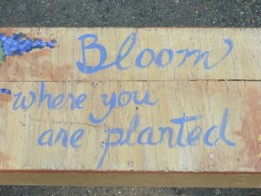 Bloom
where you
are planted